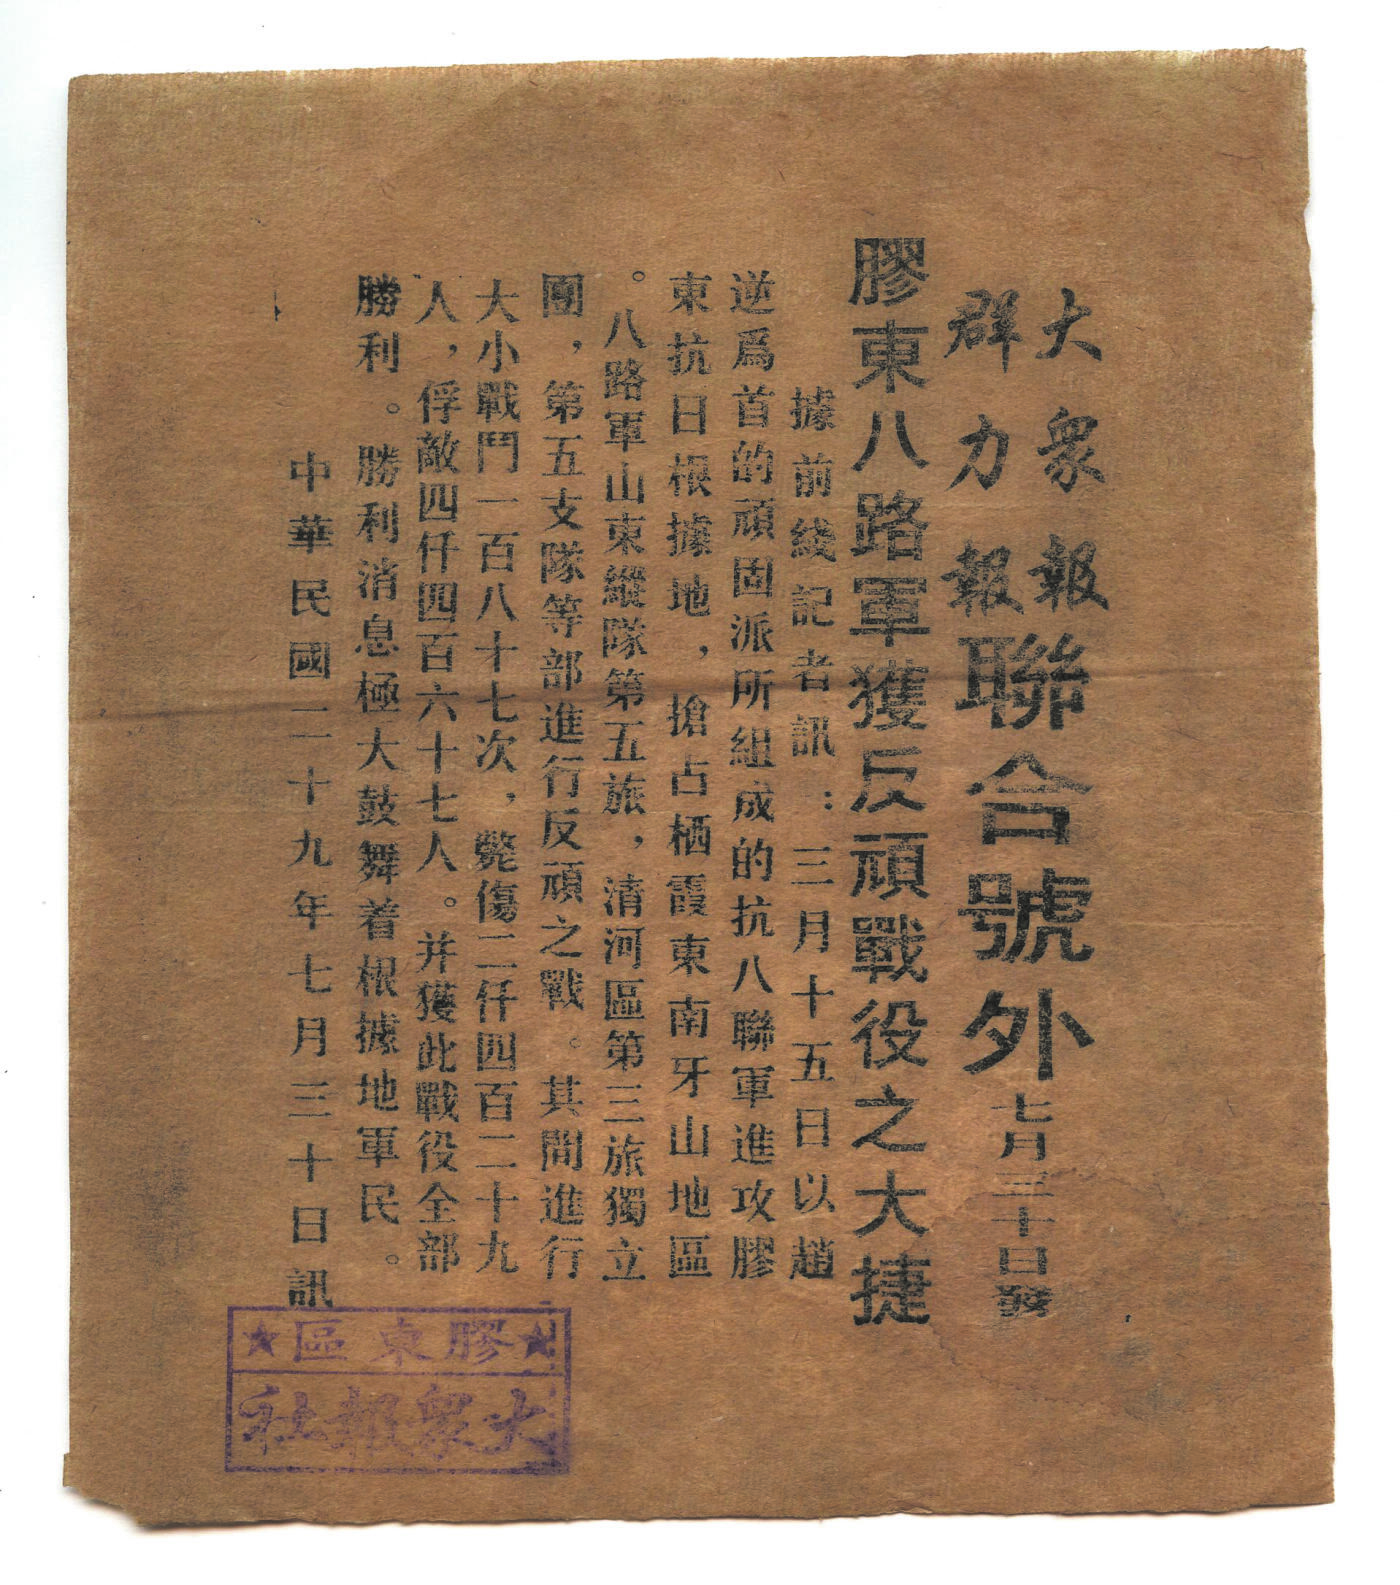 大衆報
群力報
聯合號外
七月三十日發
膠東八路軍獲反頑戰役之大捷
據前綫記者訊：三月十五日以趙
逆爲首的頑固派所組成的抗八聯軍進攻膠
東抗日根據地，搶占栖霞東南牙山地區
。八路軍山東縱隊第五旅，清河區第三旅獨立
團，第五支隊等部進行反頑之戰。其間進行
大小戰鬥一百八十七次，斃傷二仟四百二十九
人，俘敵四仟四百六十七人。并獲此戰役全部
勝利。勝利消息極大鼓舞着根據地軍民。
中華民國二十九年七月三十日訊
★膠東區★
大衆報社